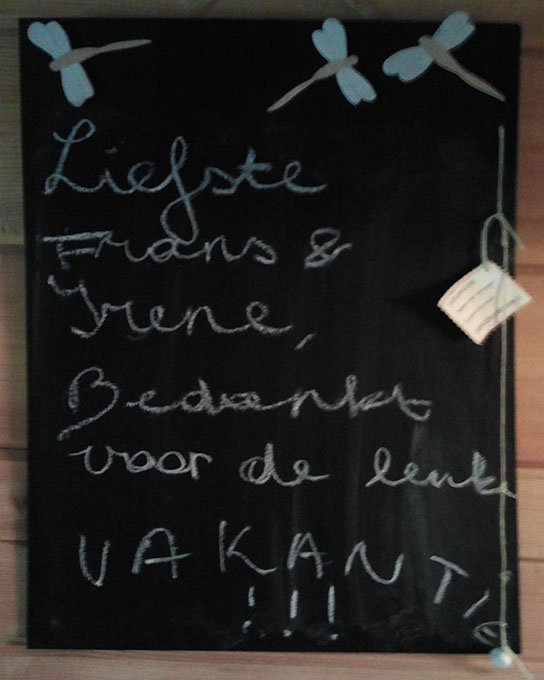 Liefste
Frans &
Irene,
Bedankt
voor de leuke
VAKANTIE
!!!